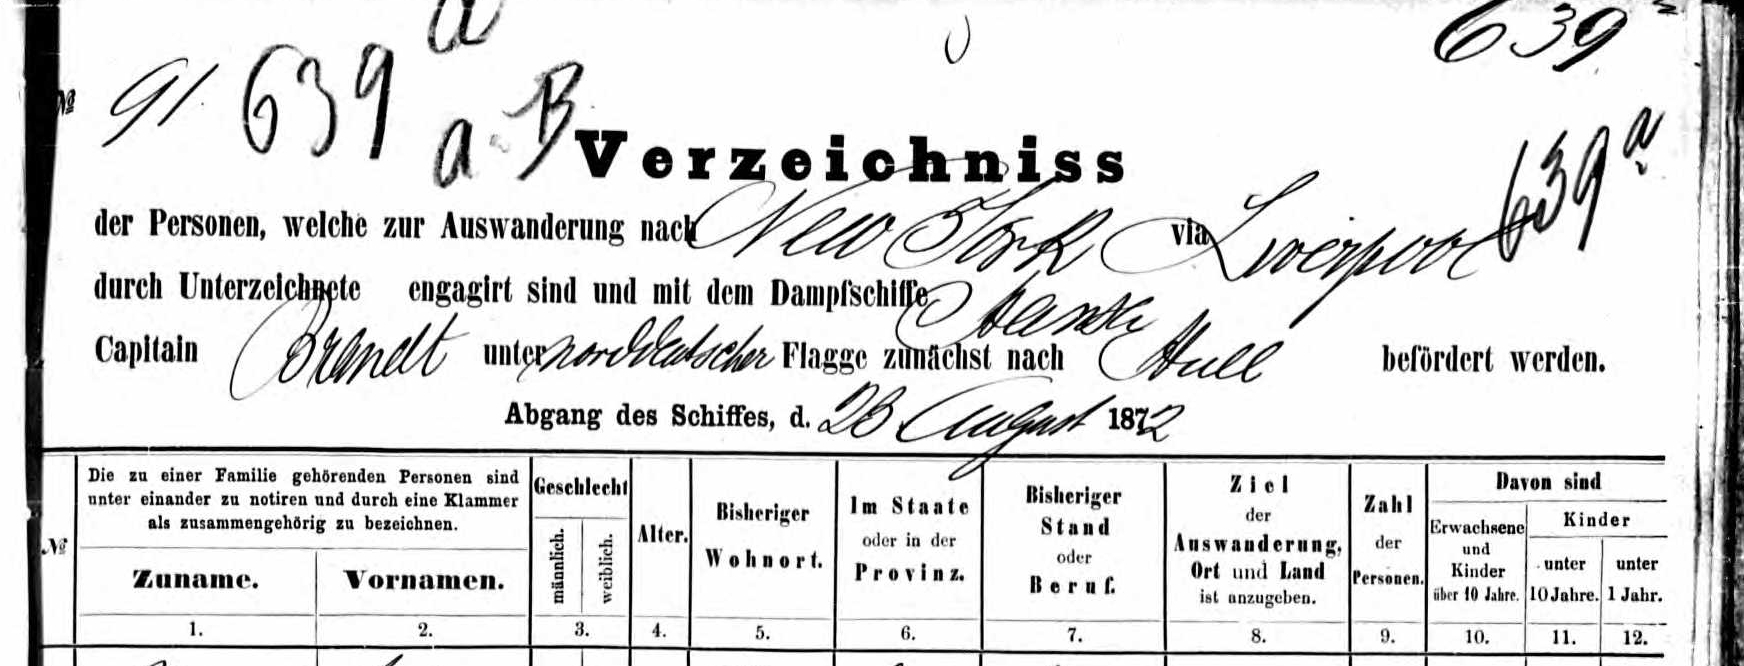 a
639 a
№ 91. 639 a. B
Verzeichniss
639 a
der Personen, welche zur Auswanderung nach New York via Liverpool
durch Unterzeichnete engagirt sind und mit dem Dampfschiffe
Capitain Brandt unter norddeutscher Flagge zunächst nach Hull befördert werden.
Abgang des Schiffes, d. 23 August 1872
№
Die zu einer Familie gehörenden Personen sind
unter einander zu notiren und durch eine Klammer
als zusammengehörig zu bezeichnen.
Zuname.
1.
Vornamen.
2.
Geschlecht
männlich.
weiblich.
3.
Alter.
4.
Bisheriger
Wohnort.
5.
Im Staate
oder in der
Provinz.
6.
Bisheriger
Stand
oder
Beruf.
7.
Ziel
der
Auswanderung,
Ort und Land
ist anzugeben.
8.
Zahl
der
Personen.
9.
Davon sind
Erwachsene
und
Kinder
über 10 Jahre.
10.
Kinder
unter
10 Jahre.
11.
unter
1 Jahr.
12.